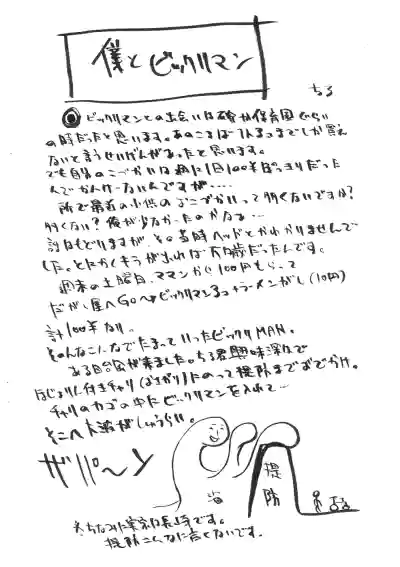 僕とビックリマン
ちる
ビックリマンとの出会いは確か保育園ぐらい
の時だったと思います。あのころは1人3つまでしか買え
ないと言うせいげんがあったと思います。
でも自分のこづかいは週に1回100円ぽっきりだった
んでかんけーないんですが・・・・
所で最近の小供のおこづかいって多くないですか?
多くない?俺が少なかったのかなぁ…
話はもどりますが、その当時ヘッドとかわかりませんで
した。とにかくキラがでれば万歳だったんです。
週末の土曜日、ママンから100円もらって
だがし屋へGoへ ビックリマン3つ+ラーメンがし(10円)
計100円なり。
そんなこんなでたまっていったビックリMAN。
ある日台風が来ました。ちる君興味深々で
ほじょりん付きチャリ(おさがり)にのって堤防までおでかけ。
チャリのカゴの中にビックリマンを入れて…
そこへ大波がしゅうらい。
ザパ〜ン
海
堤防
ちなみに実家は長崎です。
堤防こんなに高くないです。